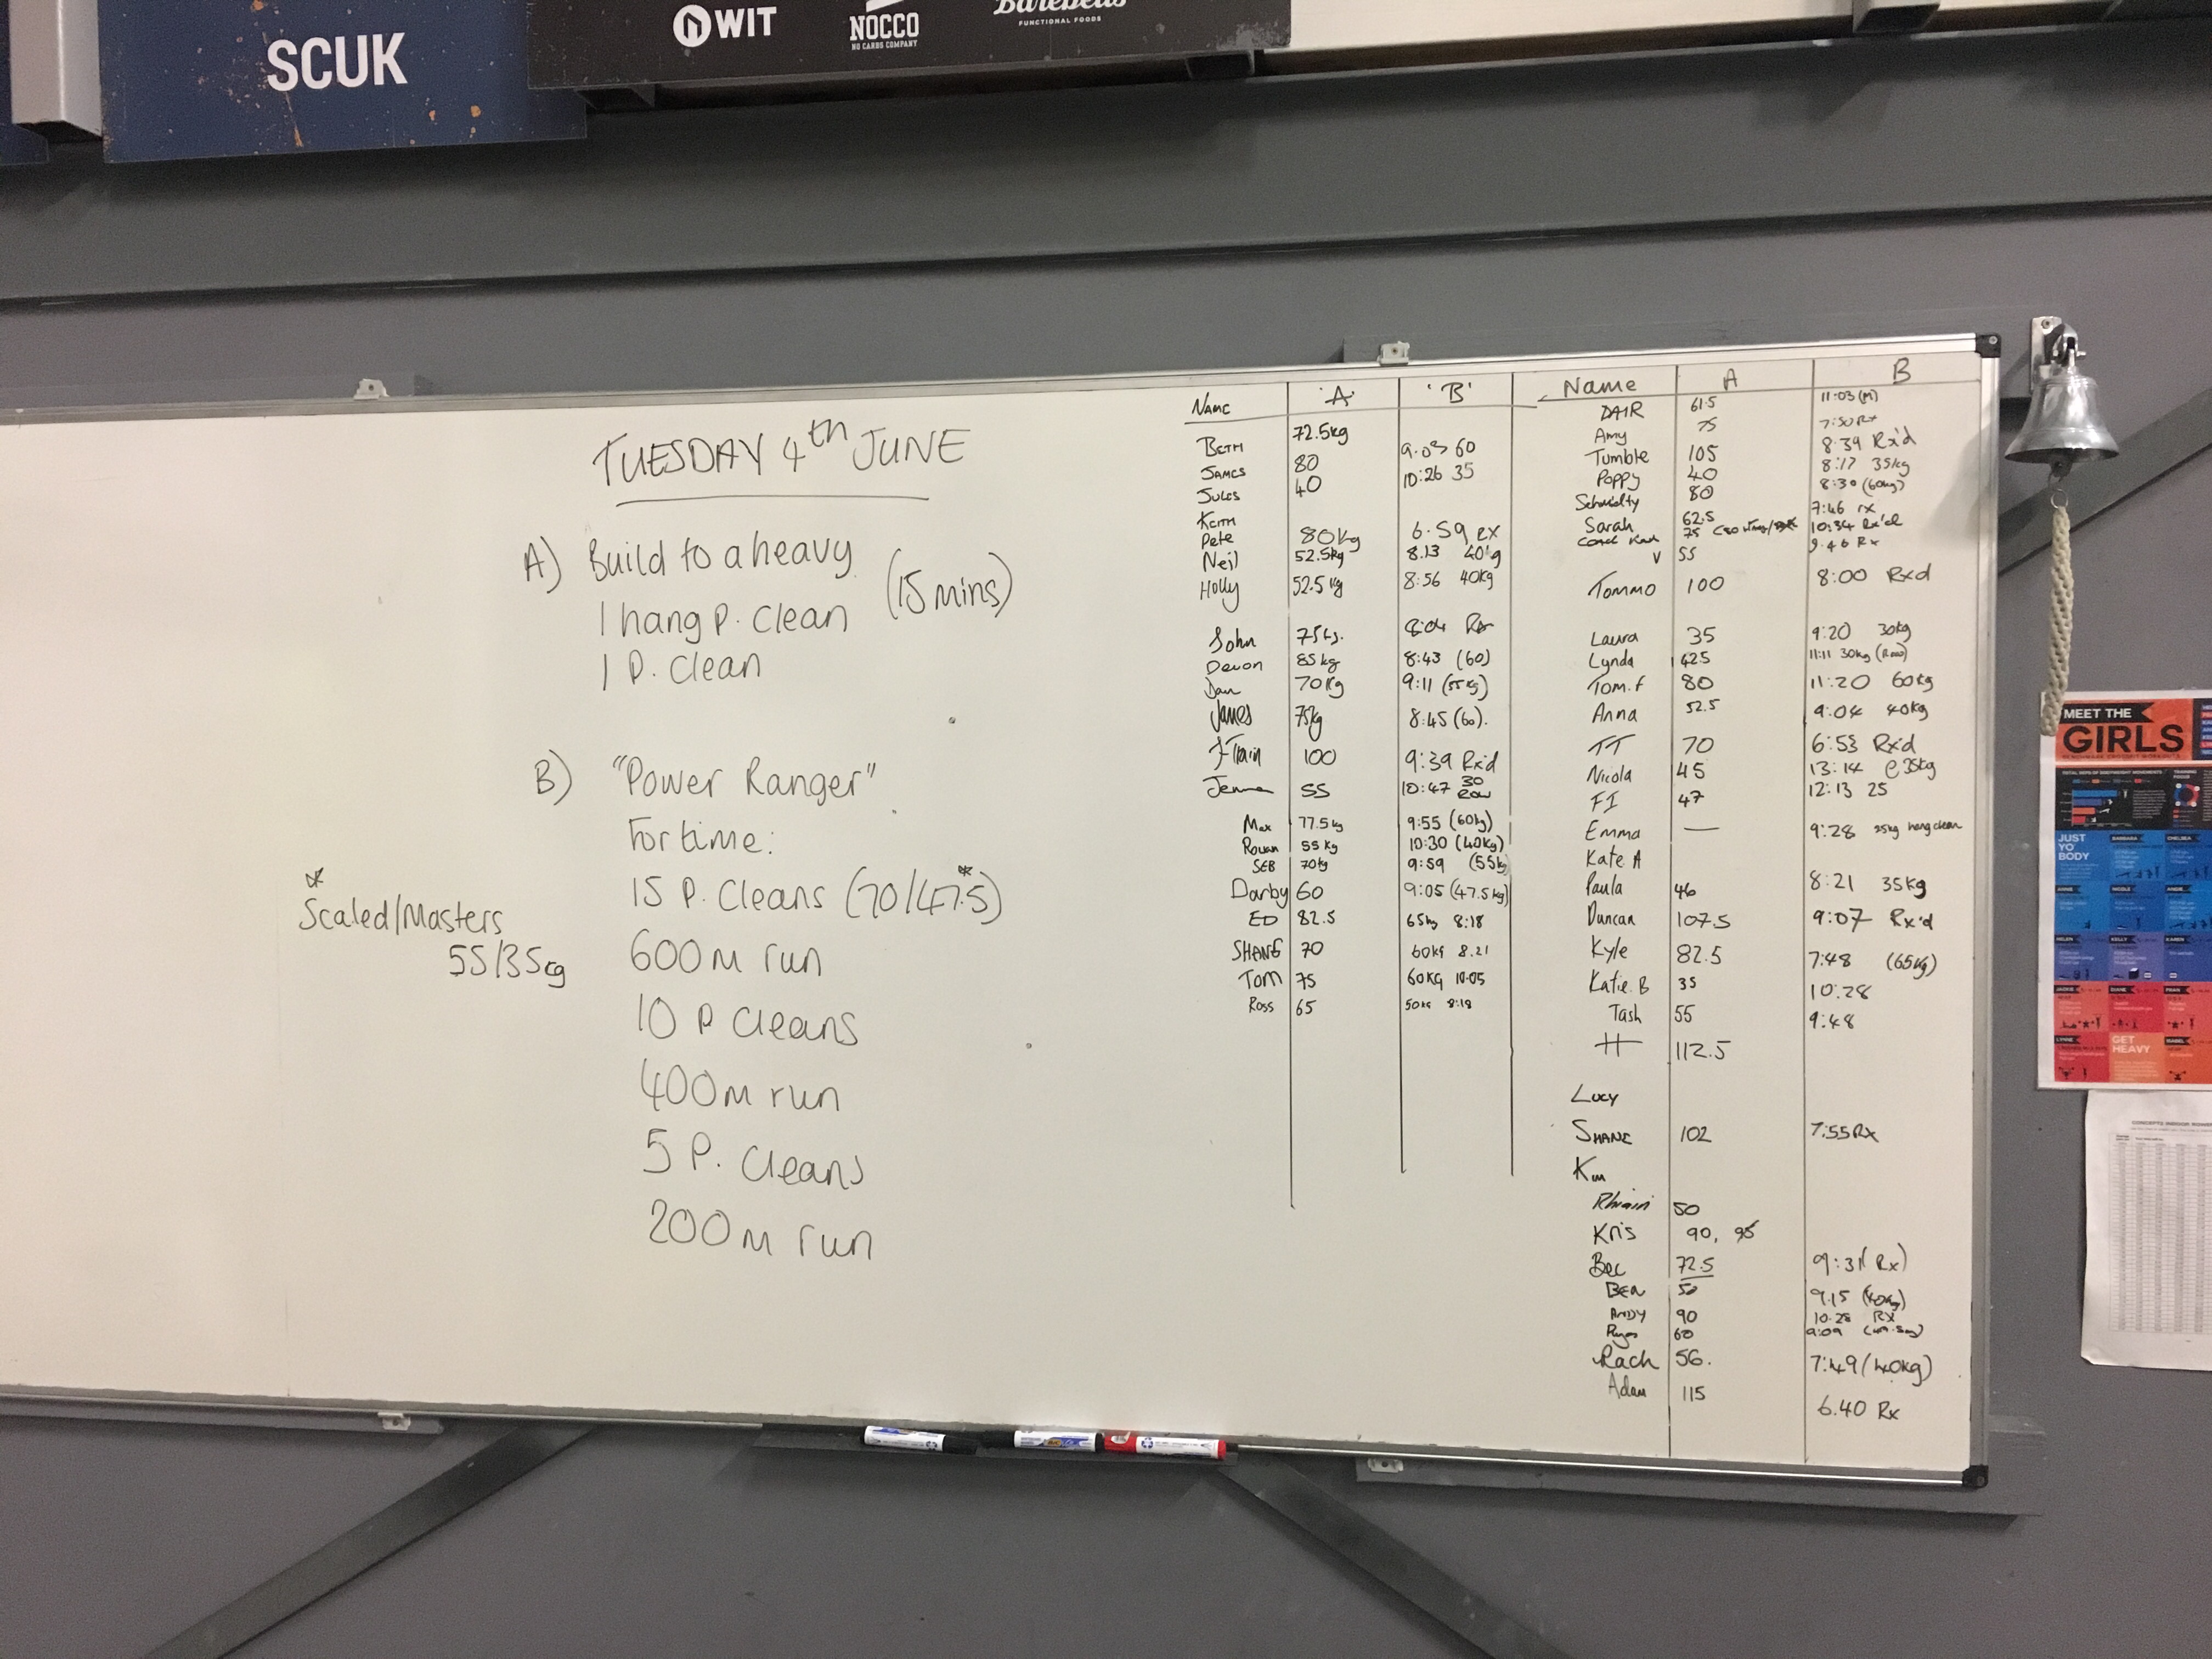 SCUK
WIT
NOCCO
NO CARBS COMPANY
Barebells
FUNCTIONAL FOODS
TUESDAY 4th JUNE
A) Build to a heavy
1 hang P. Clean (15 mins)
1 P. Clean
B) "Power Ranger"
For time:
15 P. Cleans (70/47.5)*
* Scaled/Masters
55/35kg
600m run
10 P Cleans
400m run
5 P. Cleans
200m run
Name 'A' 'B'
BETH 72.5kg
JAMES 80 9.03 60
JULES 40 10:26 35
KEITH
Pete 80kg 6.59 RX
Neil 52.5kg 8.13 40kg
Holly 52.5kg 8:56 40kg
John 75kg. 8:04 Rx
Devon 85kg 8:43 (60)
Dan 70kg 9:11 (55kg)
James 75kg 8:45 (60).
J-Train 100 9:39 Rx'd
Jenna 55 10:47 30 Row
Max 77.5kg 9:55 (60kg)
Rowan 55kg 10:30 (40kg)
SEB 70kg 9:59 (55kg
Darby 60 9:05 (47.5kg)
ED 82.5 65kg 8:18
SHANE 70 60kg 8.21
Tom 75 60kg 10.05
Ross 65 50kg 8:18
Name A B
DAIR 61.5 11:03 (M)
Amy 75 7:50 Rx
Tumble 105 8:39 Rx'd
Poppy 40 8:17 35kg
80 8:30 (60kg)
Sarah 62.5 7:46 rx
Coach 75 10:34 Rx'd
V 55 9.46 Rx
Tommo 100 8:00 Rxd
Laura 35 9:20 30kg
Lynda 42.5 11:11 30kg (Row)
Tom.F 80 11:20 60kg
Anna 52.5 9:04 40kg
TT 70 6:53 Rx'd
Nicola 45 13:14 @35kg
FI 47 12:13 25
Emma — 9:28 25kg hang clean
Kate A
Paula 46 8:21 35kg
Duncan 107.5 9:07 Rx'd
Kyle 82.5 7:48 (65kg)
Katie.B 35 10:28
Tash 55 9:48
H 112.5
Lucy
SHANE 102 7:55 RX
Kim
50
Kris 90, 95
Bec 72.5 9:31 (Rx)
BEN 50 9.15 (40kg)
ANDY 90 10.28 RX
60 9:09
Rach 56. 7:49 (40kg)
Adam 115 6.40 Rx
MEET THE
GIRLS
JUST
YO
BODY
GET
HEAVY